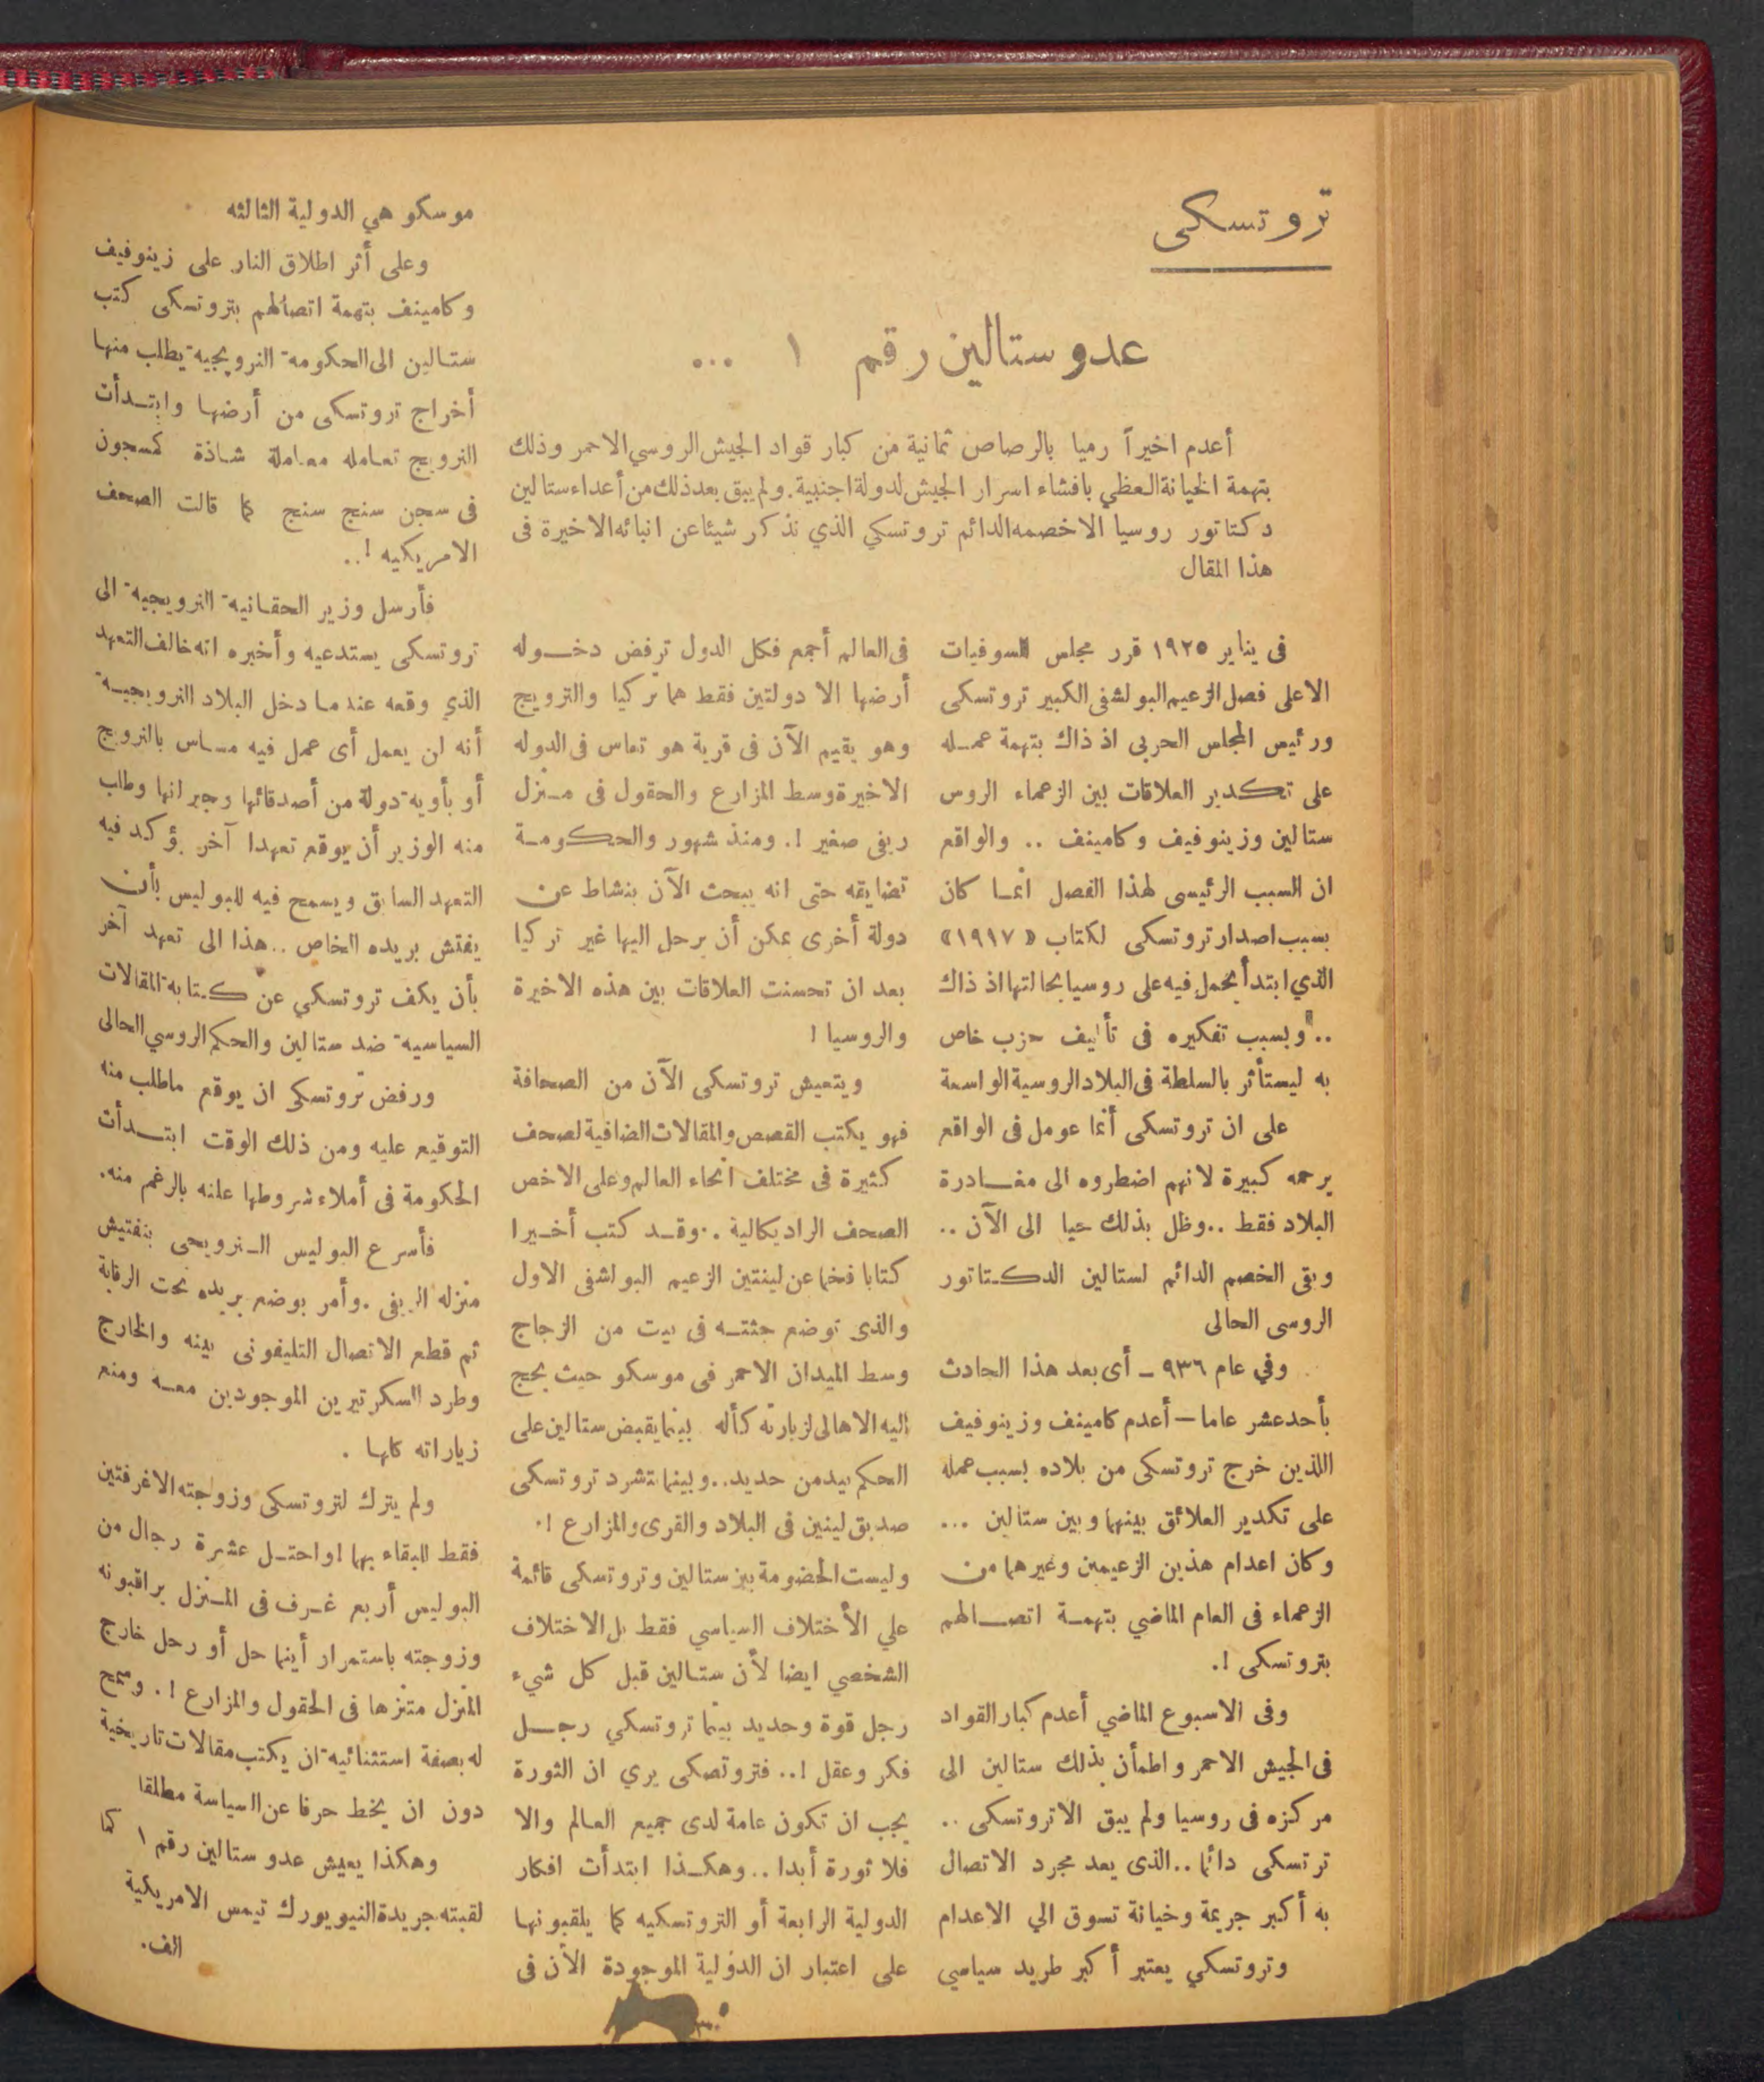 تروتسكى
عدو ستالين رقم ١ ...
أعدم اخيراً رميا بالرصاص ثمانية من كبار قواد الجيش الروسي الاحمر وذلك
بتهمة الخيانة العظي بافشاء اسرار الجيش لدولة اجنبية . ولم يبق بعد ذلك من أعداء ستالين
دكتاتور روسيا الاخصمه الدائم تروتسكي الذي نذكر شيئا عن انبائه الاخيرة فى
هذا المقال
فى يناير ١٩٢٥ قرر مجلس السوفيات
الاعلى فصل الزعيم البولشفى الكبير تروتسكى
ورئيس المجلس الحربى اذ ذاك بتهمة عمله
على تكدير العلاقات بين الزعماء الروس
ستالين وزينوفيف وكامينف .. والواقع
ان السبب الرئيسى لهذا الفصل انما كان
بسبب اصدار تروتسكى لكتاب «١٩١٧»
الذي ابتدأ يحمل فيه على روسيا بحالتها اذ ذاك
.. وبسبب تفكيره فى تأليف حزب خاص
به ليستأثر بالسلطة فى البلاد الروسية الواسعة
على ان تروتسكى أنما عومل فى الواقع
برحمه كبيرة لانهم اضطروه الى مغادرة
البلاد فقط .. وظل بذلك حيا الى الآن ..
وبقى الخصم الدائم لستالين الدكتاتور
الروسى الحالى
وفي عام ٩٣٦ ـ أى بعد هذا الحادث
بأحد عشر عاما — أعدم كامينف وزينوفيف
اللذين خرج تروتسكى من بلاده بسبب عمله
على تكدير العلائق بينهما وبين ستالين ...
وكان اعدام هذين الزعيمين وغيرهما من
الزعماء فى العام الماضي بتهمة اتصالهم
بتروتسكى !.
وفى الاسبوع الماضي أعدم كبار القواد
فى الجيش الاحمر واطمأن بذلك ستالين الى
مركزه فى روسيا ولم يبق الاتروتسكى ..
ترتسكى دائما .. الذى يعد مجرد الاتصال
به أكبر جريمة وخيانة تسوق الي الاعدام
وتروتسكي يعتبر أكبر طريد سياسي
فى العالم أجمع فكل الدول ترفض دخوله
أرضها الا دولتين فقط هما تركيا والنرويج
وهو يقيم الآن فى قرية هو تعاس فى الدوله
الاخيرة وسط المزارع والحقول فى منزل
ريفى صغير !. ومنذ شهور والحكومة
تضايقه حتى انه يبحث الآن بنشاط عن
دولة أخرى يمكن أن يرحل اليها غير تركيا
بعد ان تحسنت العلاقات بين هذه الاخيرة
والروسيا !
ويتعيش تروتسكى الآن من الصحافة
فهو يكتب القصص والمقالات الضافية لصحف
كثيرة فى مختلف انحاء العالم وعلى الاخص
الصحف الراديكالية .. وقد كتب أخيرا
كتابا فخما عن لينتين الزعيم البولشفى الاول
والذى توضع جثته فى بيت من الزجاج
وسط الميدان الاحمر فى موسكو حيث يحج
اليه الاهالى لزيارته كأله بينما يقبض ستالين على
الحكم بيد من حديد .. وبينما تشرد تروتسكى
صديق لينين فى البلاد والقرى والمزارع !.
وليست الخضومة بين ستالين وتروتسكى قائمة
علي الأختلاف السياسي فقط بل الاختلاف
الشخصي ايضا لأن ستالين قبل كل شيء
رجل قوة وحديد بينما تروتسكي رجل
فكر وعقل !.. فتروتصكى يري ان الثورة
يجب ان تكون عامة لدى جميع العالم والا
فلا ثورة أبدا .. وهكذا ابتدأت افكار
الدولية الرابعة أو التروتسكيه كما يلقبونها
على اعتبار ان الدولية الموجودة الأن فى
موسكو هي الدولية الثالثه
وعلى أثر اطلاق النار على زينوفيف
وكامينف بتهمة اتصالهم بتروتسكى كتب
ستالين الى الحكومة النرويجية يطلب منها
أخراج تروتسكى من أرضها وابتدأت
النرويج تعامله معاملة شاذة كمسجون
فى سجن سنج سنج كما قالت الصحف
الامريكيه !..
فأرسل وزير الحقانية النرويجية الى
تروتسكى يستدعيه وأخبره انه خالف التعهد
الذي وقعه عندما دخل البلاد النرويجية
أنه لن يعمل أى عمل فيه مساس بالنرويج
أو بأوية دولة من أصدقائها وجيرانها وطلب
منه الوزير أن يوقع تعهدا آخر يؤكد فيه
التعهد السابق ويسمح فيه للبوليس بأن
يفتش بريده الخاص .. هذا الى تعهد آخر
بأن يكف تروتسكي عن كتابة المقالات
السياسية ضد ستالين والحكم الروسي الحالى
ورفض تروتسكى ان يوقع ماطلب منه
التوقيع عليه ومن ذلك الوقت ابتدأت
الحكومة فى أملاء شروطها علنه بالرغم منه.
فأسرع البوليس النرويجى بتفتيش
منزله الريفى . وأمر بوضع بريده تحت الرقابة
ثم قطع الاتصال التليفونى بينه والخارج
وطرد السكرتيرين الموجودين معه ومنع
زياراته كلها .
ولم يترك لتروتسكى وزوجته الاغرفتين
فقط للبقاء بهما !واحتل عشرة رجال من
البوليس أربع غرف فى المنزل يراقبونه
وزوجته باستمرار أينما حل أو رحل خارج
المنزل متنزها فى الحقول والمزارع !. وسمح
له بصفة استثنائية ان يكتب مقالات تاريخية
دون ان يخط حرفا عن السياسة مطلقا
وهكذا يعيش عدو ستالين رقم ١ كما
لقبته جريدة النيويورك تيمس الامريكية
الف.